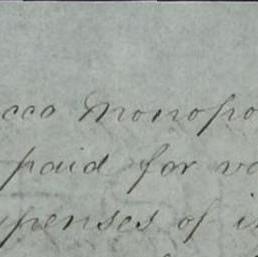 cco Monopo
paid for va
xpenses of i